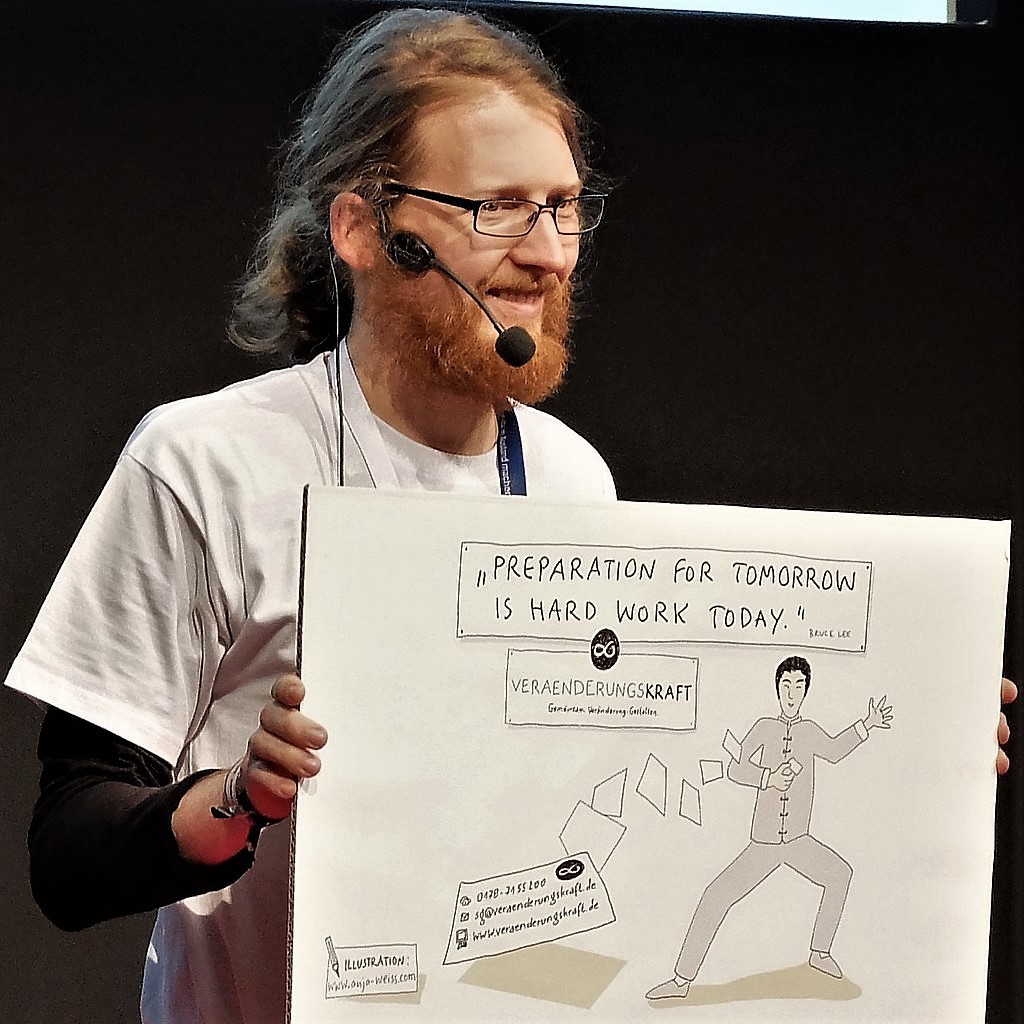 „PREPARATION FOR TOMORROW
IS HARD WORK TODAY."
BRUCE LEE
VERAENDERUNGSKRAFT
Gemeinsam Veränderung Gestalten.
0178-7155200
sg@veraenderungskraft.de
www.veraenderungskraft.de
ILLUSTRATION:
www.anja-weiss.com